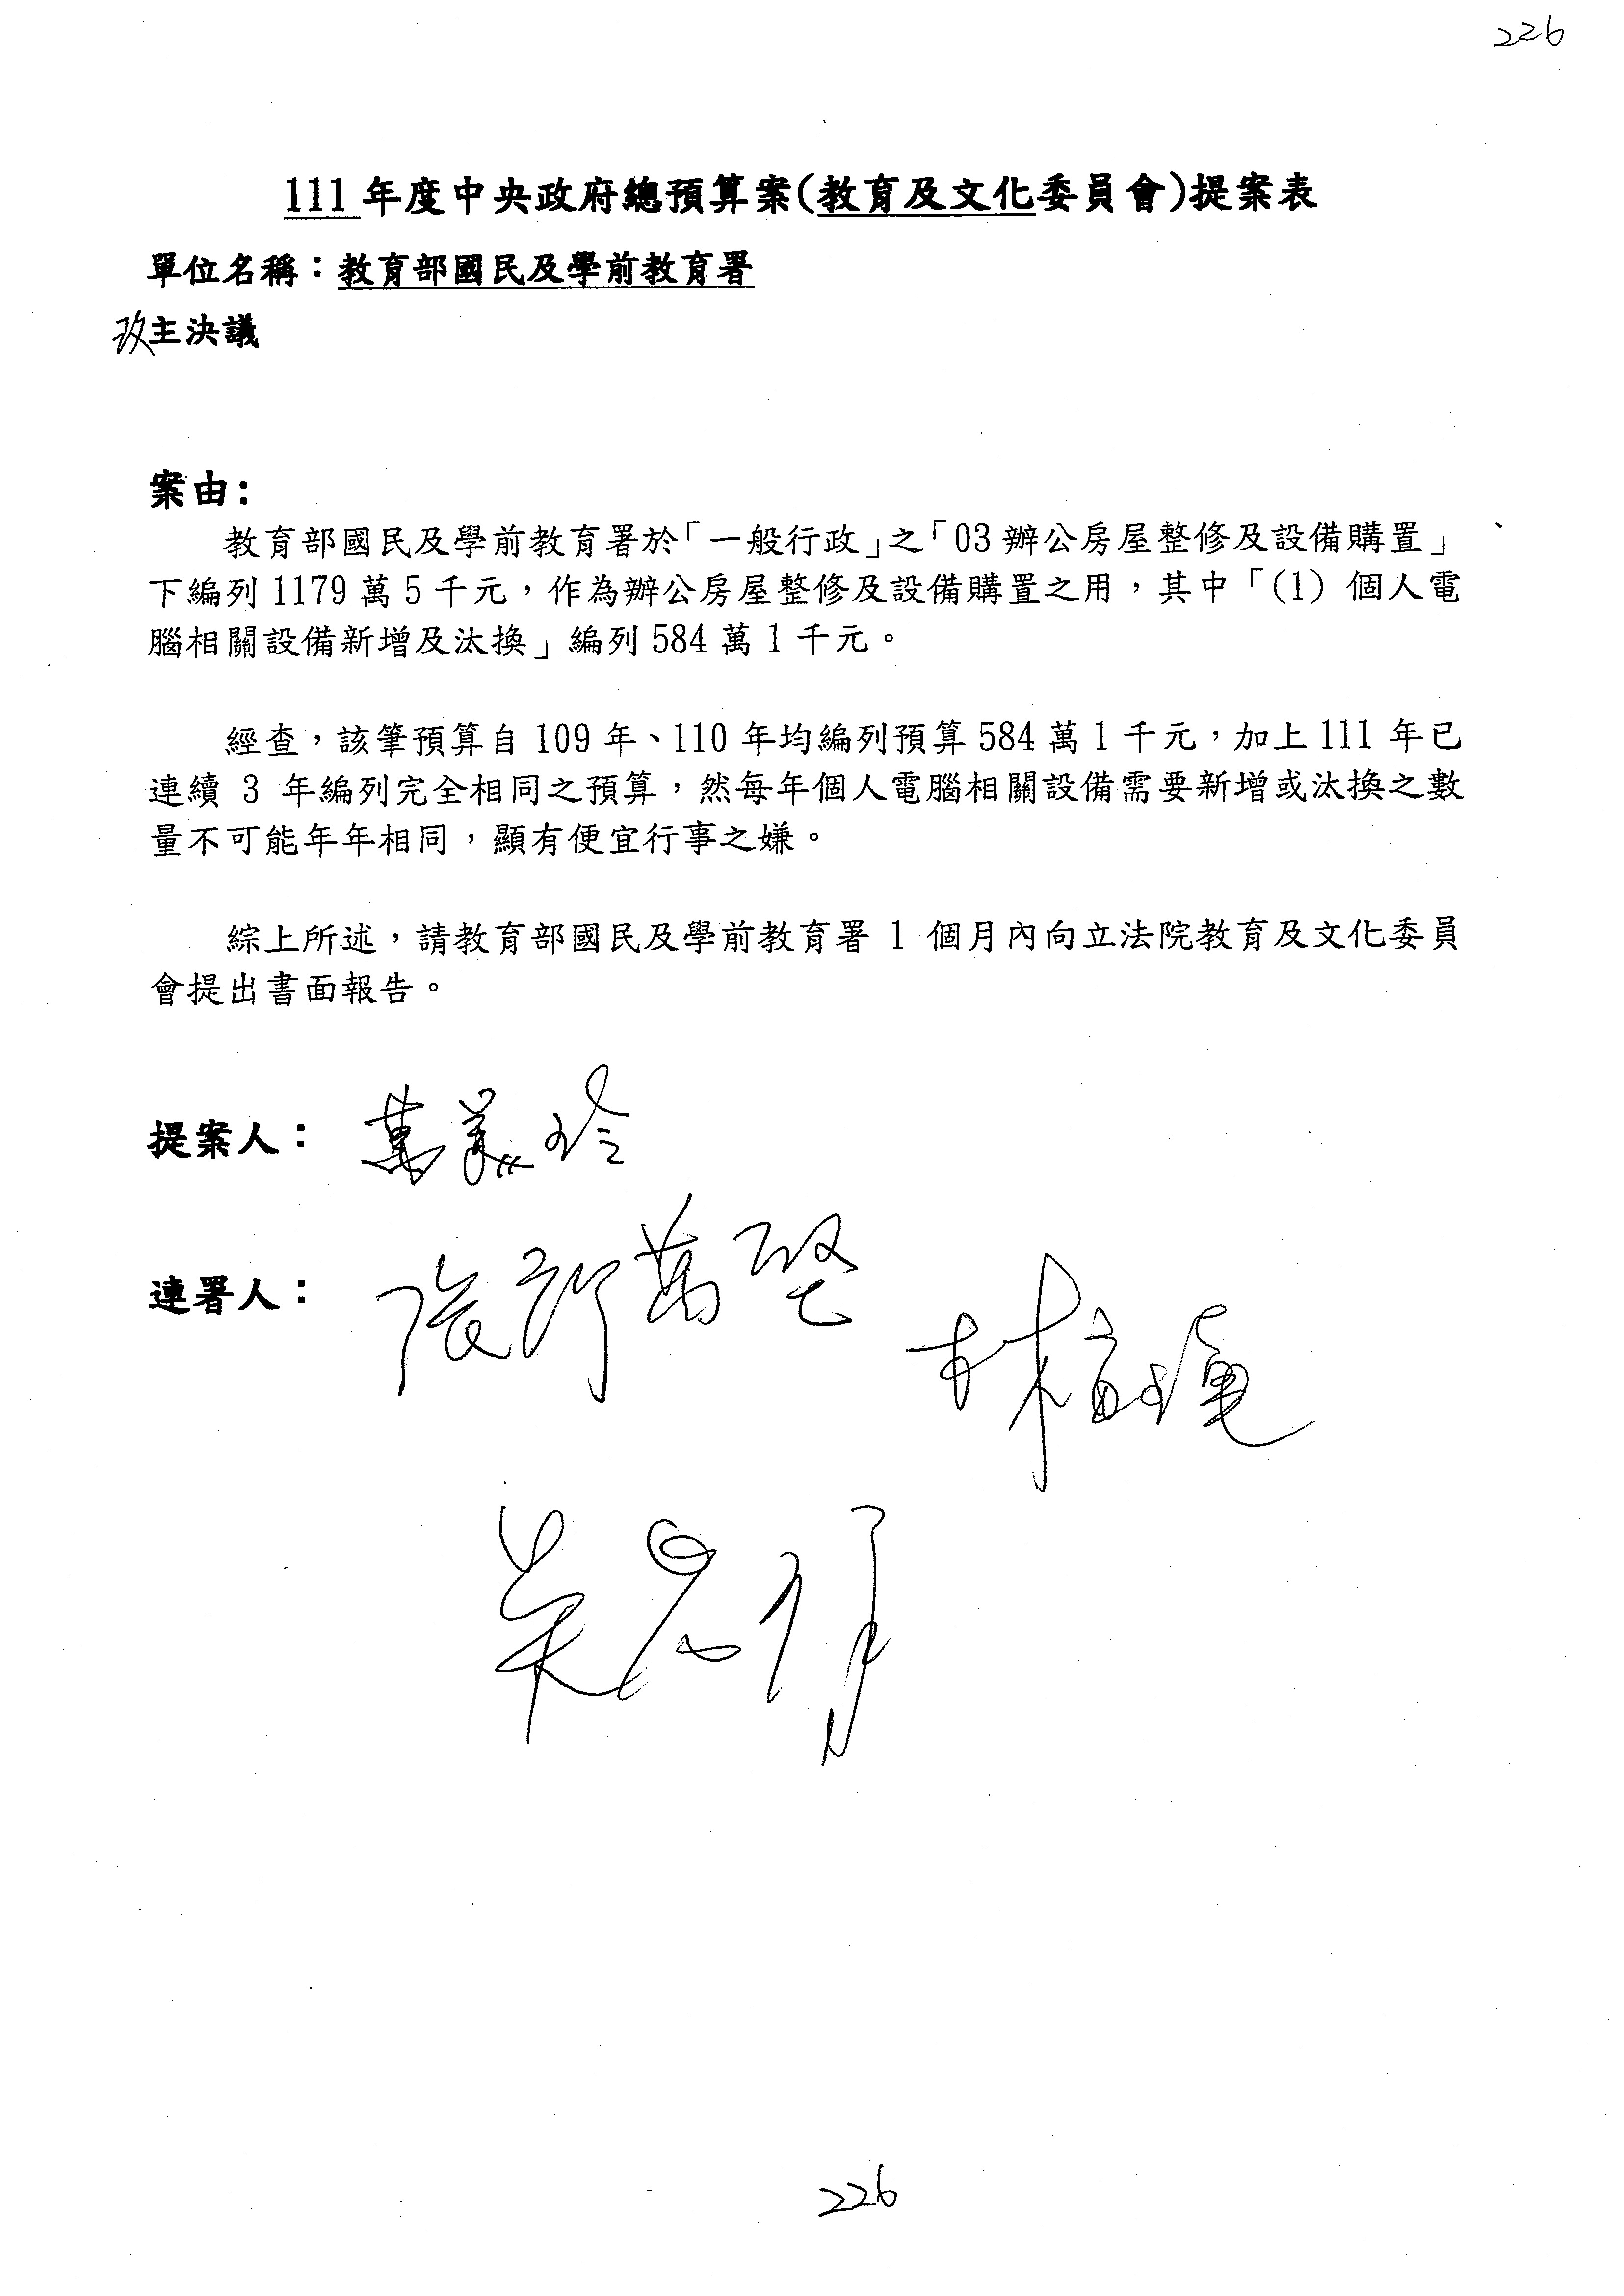 226
111年度中央政府總預算案(教育及文化委員會)提案表
單位名稱：教育部國民及學前教育署
改主決議
案由:
教育部國民及學前教育署於「一般行政」之「03辦公房屋整修及設備購置」
下編列1179萬5千元，作為辦公房屋整修及設備購置之用，其中「(1) 個人電
腦相關設備新增及汰換」編列584萬1千元。
經查，該筆預算自109年、110年均編列預算584萬1千元，加上111年已
連續 3 年編列完全相同之預算，然每年個人電腦相關設備需要新增或汰換之數
量不可能年年相同，顯有便宜行事之嫌。
綜上所述，請教育部國民及學前教育署 1 個月內向立法院教育及文化委員
會提出書面報告。
提案人： 萬美玲
連署人：
226